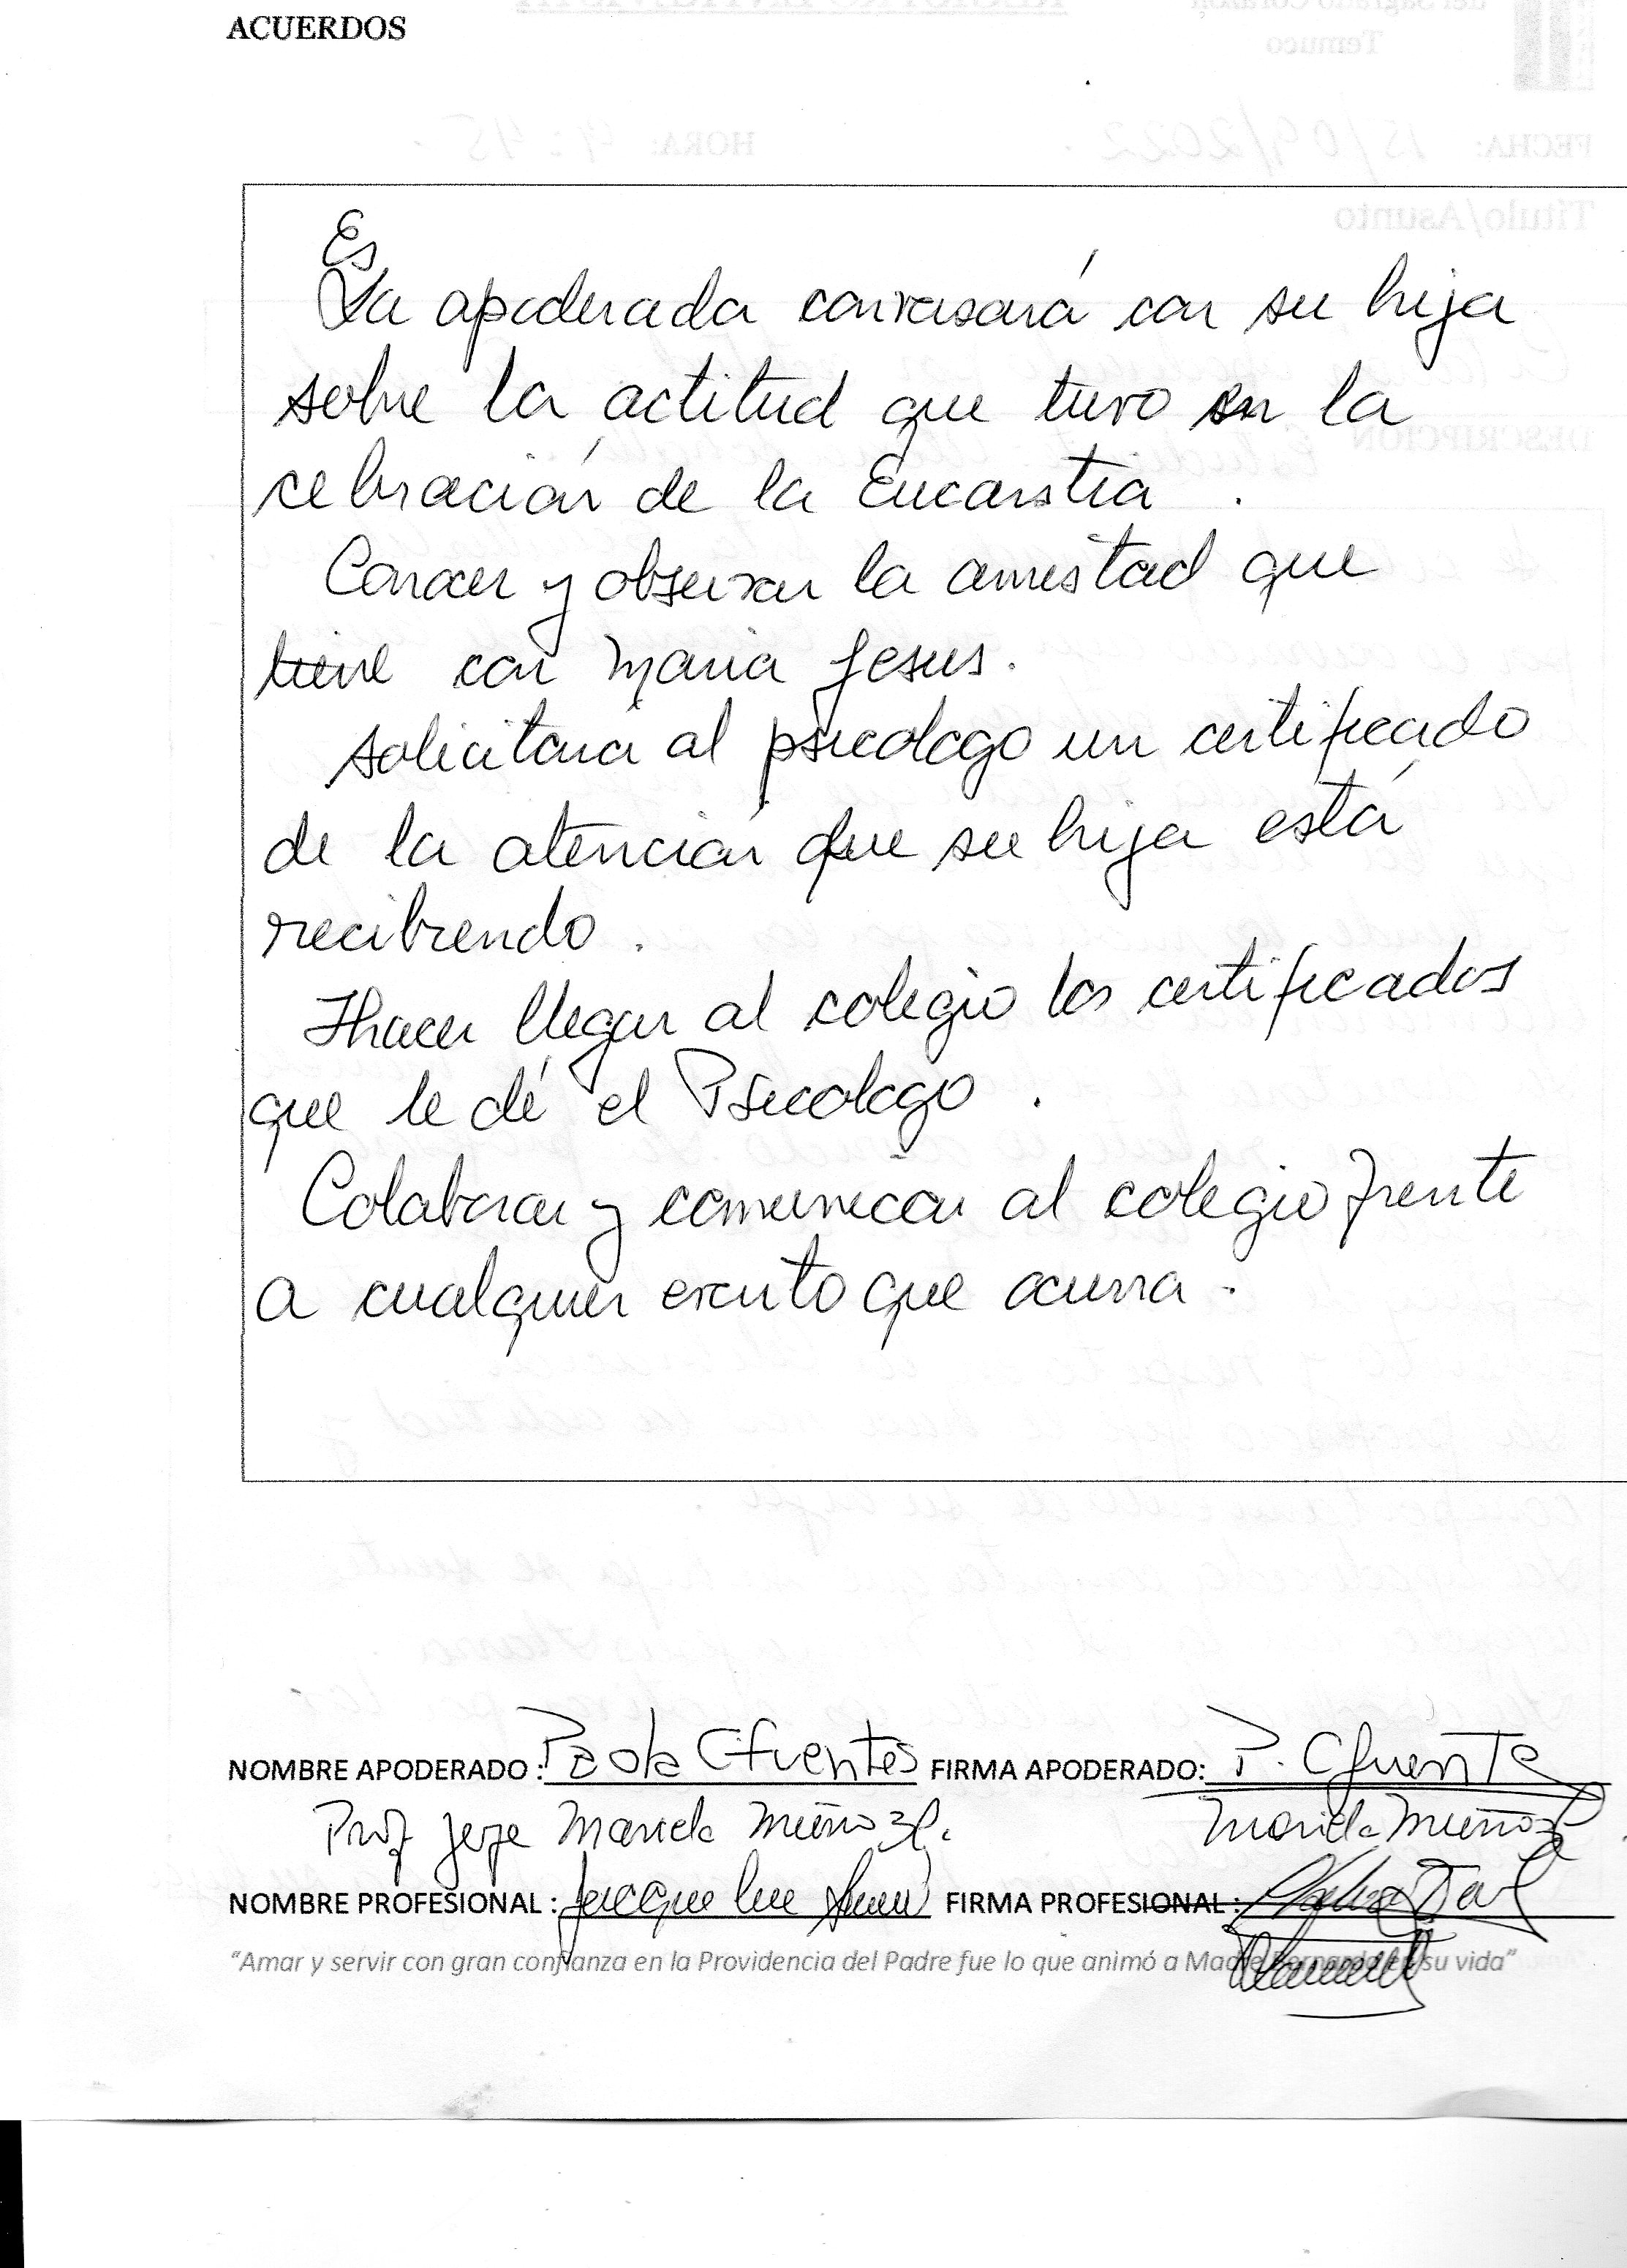 ACUERDOS
Es
La apoderada conversará con su hija
sobre la actitud que tuvo en la
celbración de la Eucaristia .
Conocer y observar la amistad que
tiene con Maria Jesus.
Solicitara al psicologo un certificado
de la atención que su hija está
recibiendo .
Hhacer llegar al colegio los certificados
que le dé el Psicologo .
Colaborar y comunicar al colegio frente
a cualquier evento que ocurra .
NOMBRE APODERADO : Paola Cifuentes FIRMA APODERADO: P. Cifuentes
Prof Jefe Mariela Muñoz Mariela Muñoz
NOMBRE PROFESIONAL : Jacqueline FIRMA PROFESIONAL :
“Amar y servir con gran confianza en la Providencia del Padre fue lo que animó a Madre Bernarda en su vida”